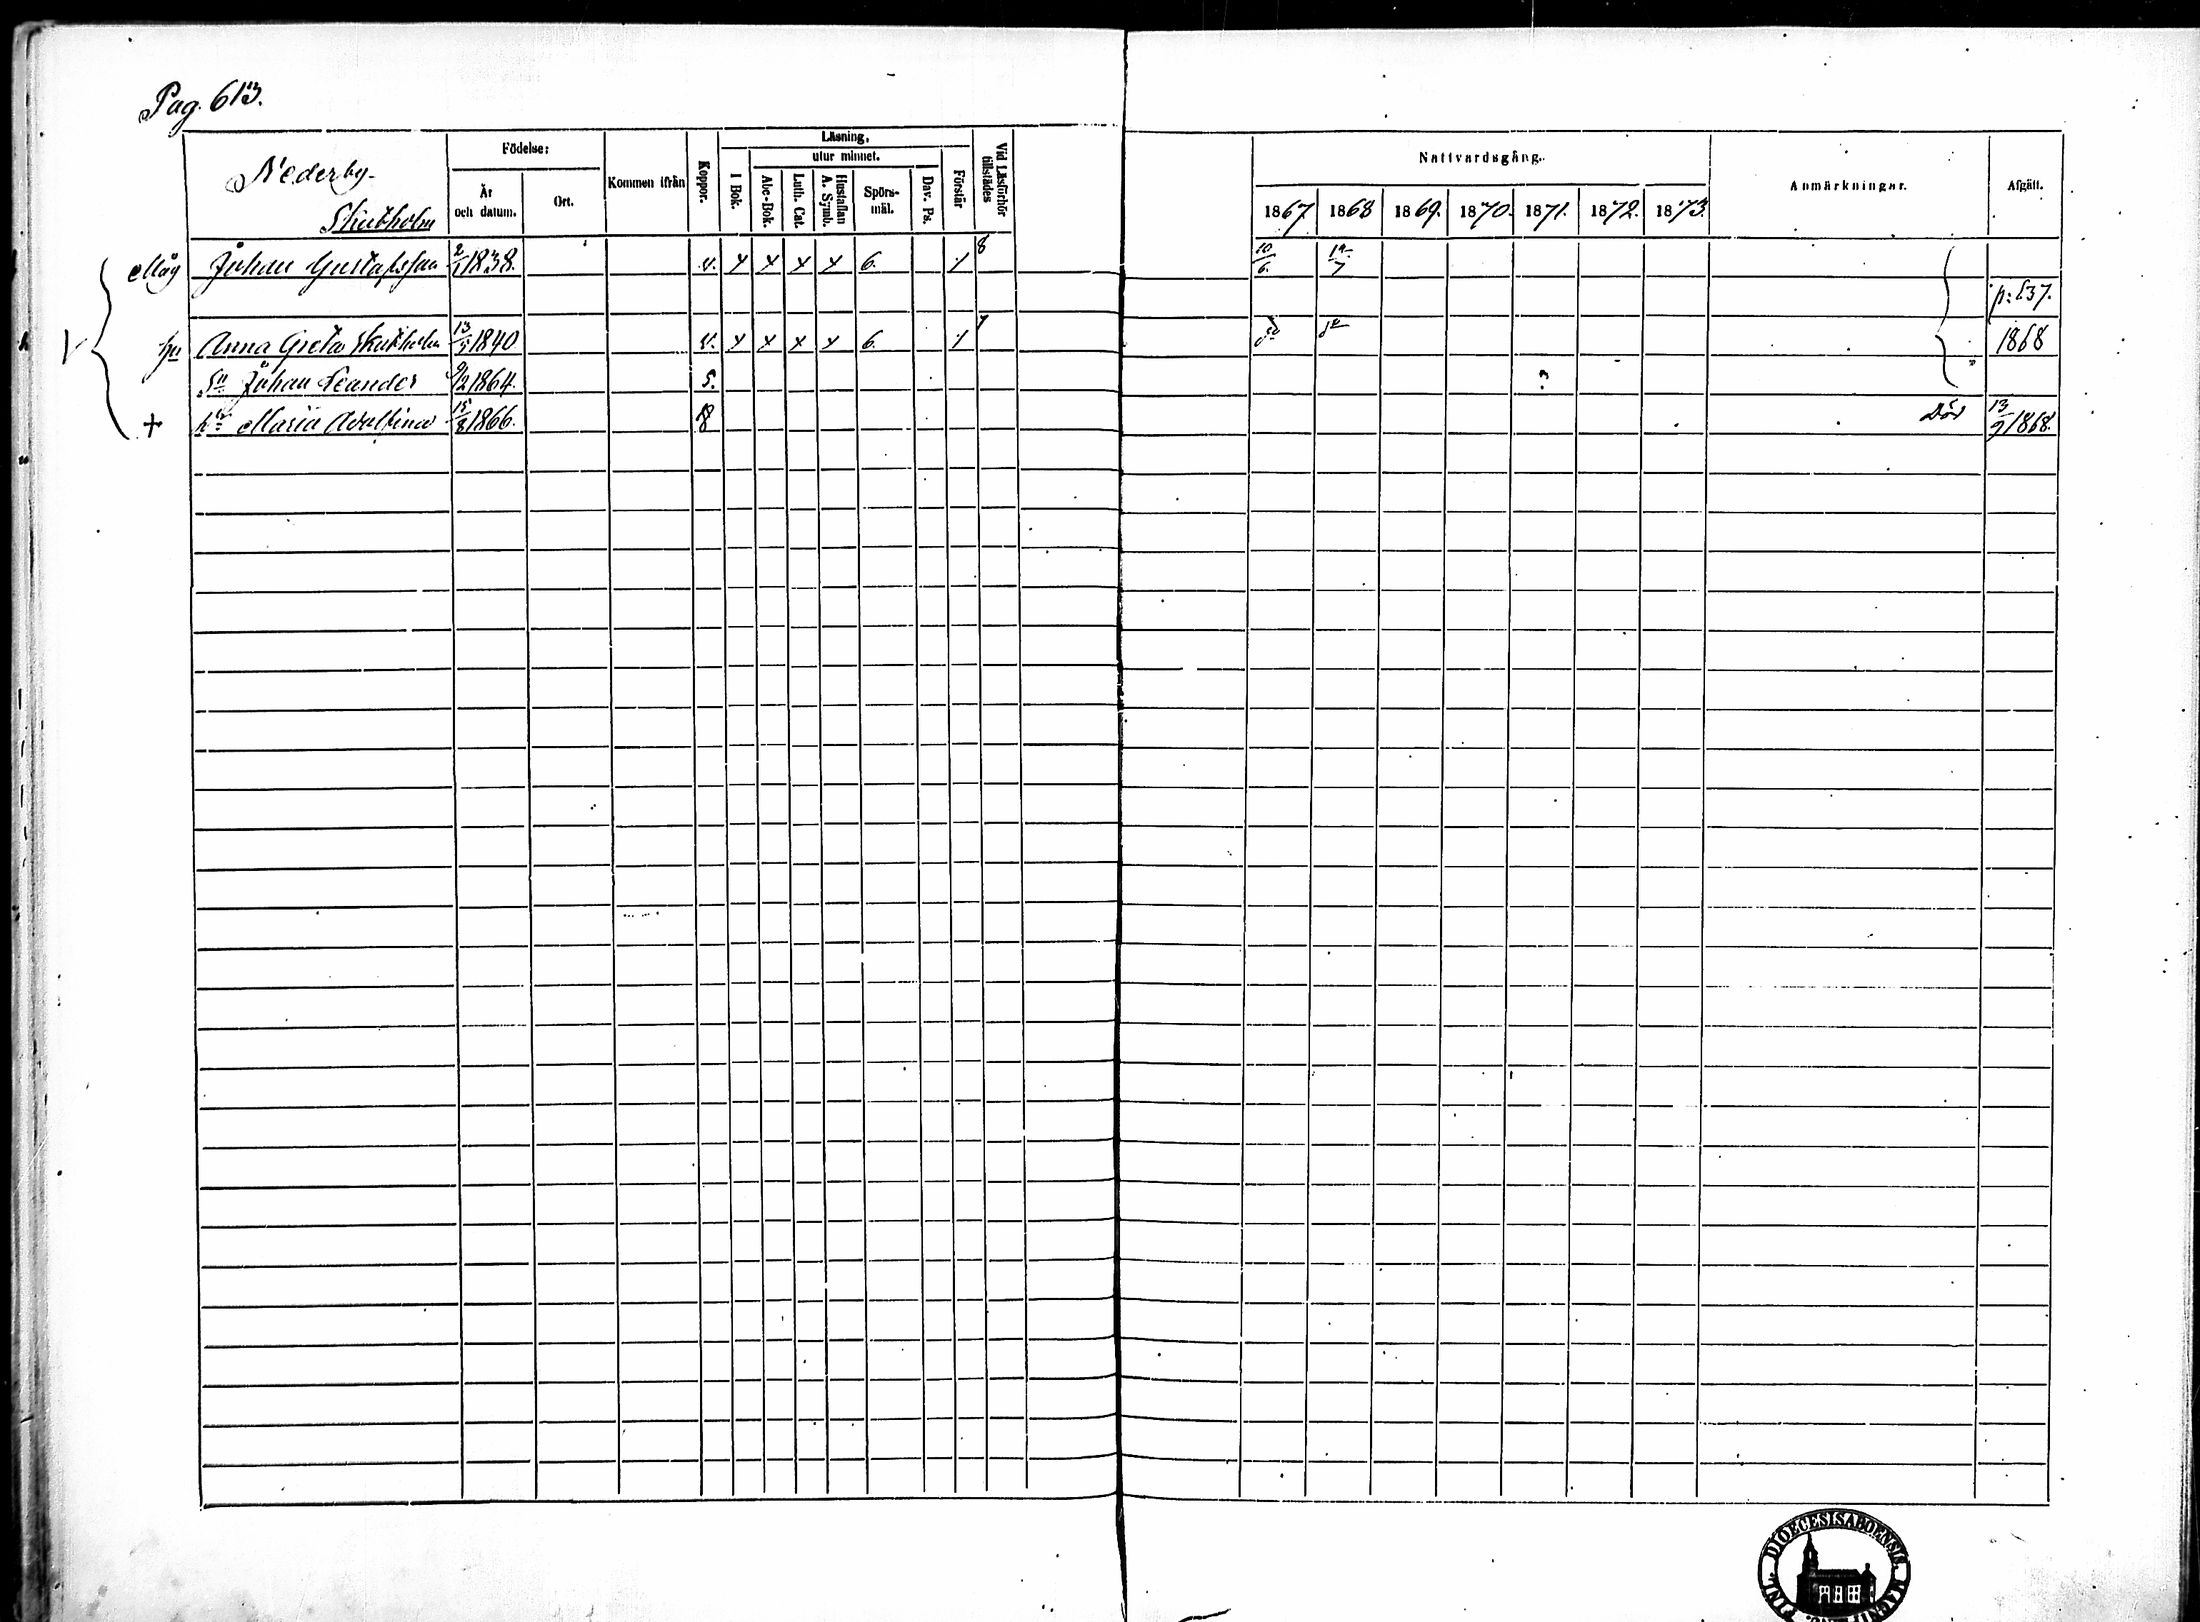 Pag. 613.
Nederby.
Skutholm
Födelse:
År och datum.
Ort.
Kommen ifrån
Koppor.
Läsning,
utur minnet.
I Bok.
Abc-Bok.
Luth. Cat.
Hustaflan A. Symb.
Spörs-mål.
Dav. Ps.
Förstår
Vid Läsförhör tillstädes
Nattvardsgång.
1867 1868 1869. 1870. 1871. 1872. 1873.
Anmärkningar.
Afgått.
Måg Johan Gustafsson 2/1 1838. v. x x x x 6. 1 8 10/6. 14/7
p: 537.
hu Anna Greta Skutholm 13/5 1840 v. x x x x 6. 1 7 do do 1868
Sn Johan Leander 9/2 1864. s.
+ Maria Adolfina 15/8 1866. Död 13/9 1868.
DIOECESIS ABOENSIS